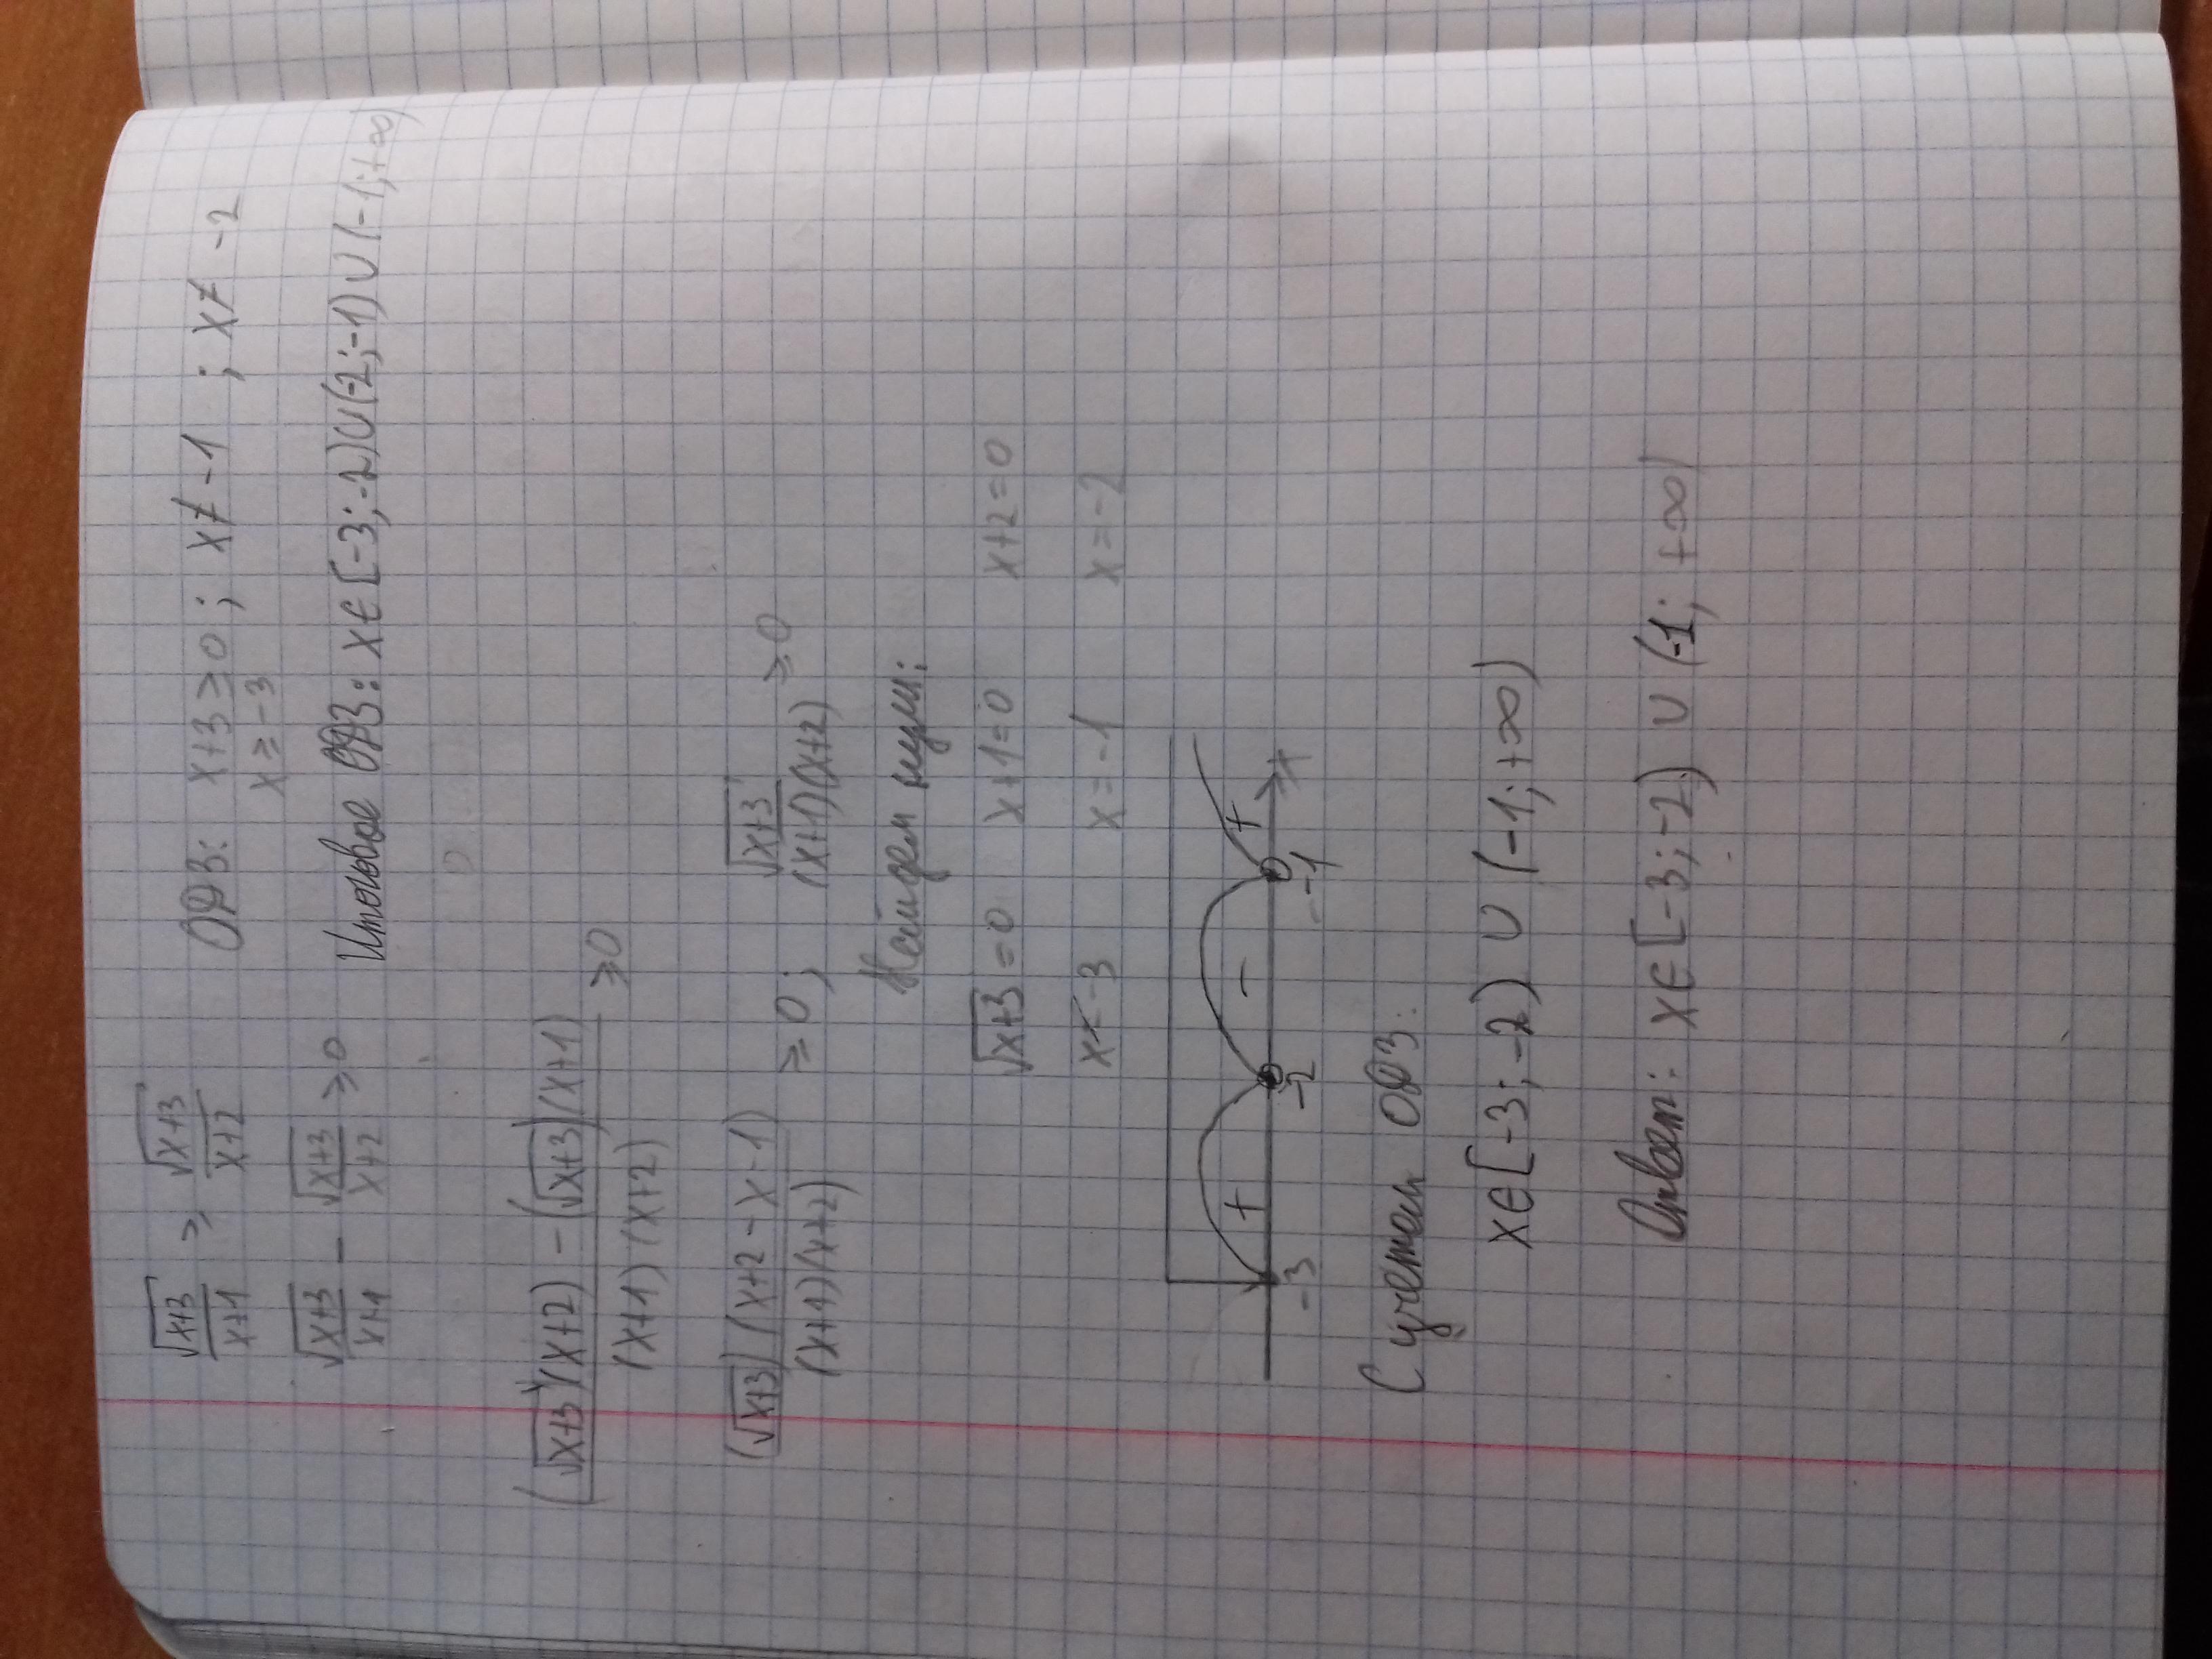 √x+3/x+1 ≥ √x+3/x+2 ОДЗ: x+3≥0; x≠-1 ; x≠-2
x≥-3
√x+3/x+1 - √x+3/x+2 ≥0 Итоговое ОДЗ: x∈[-3;-2)∪(-2;-1)∪(-1;+∞)
(√x+3)(x+2) - (√x+3)(x+1)/(x+1)(x+2) ≥0
(√x+3)(x+2-x-1)/(x+1)(x+2) ≥0; √x+3/(x+1)(x+2) ≥0
Найдем нули:
√x+3=0 x+1=0 x+2=0
x=-3 x=-1 x=-2
+ - + x
-3 -2 -1
С учетом ОДЗ:
x∈[-3;-2) ∪ (-1;+∞)
Ответ: x∈[-3;-2) ∪ (-1; +∞)